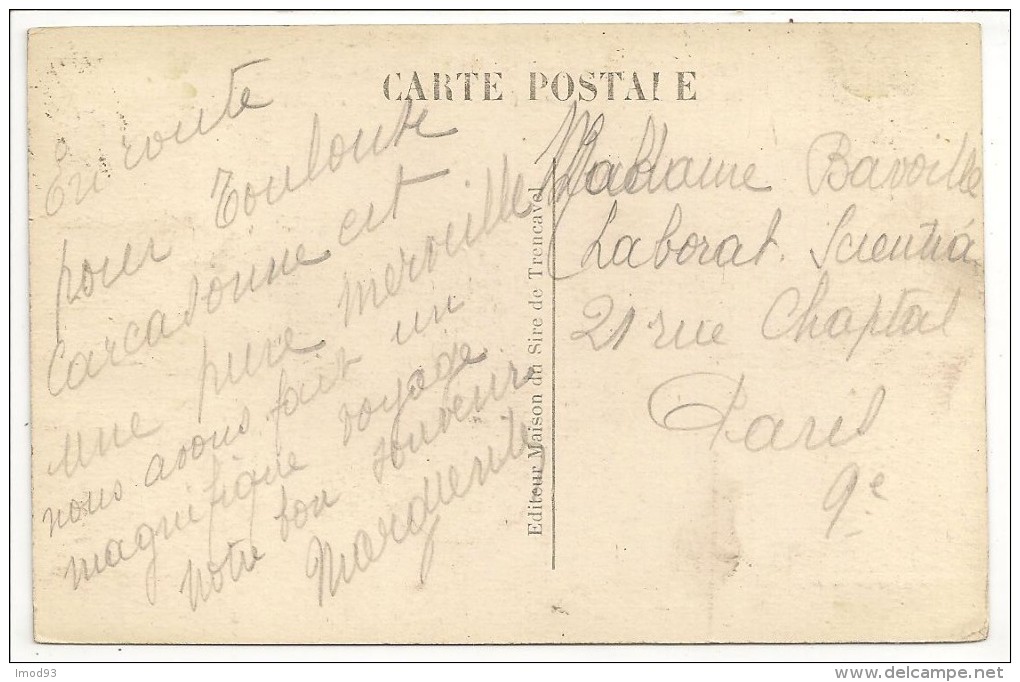 CARTE POSTALE
En route
pour Toulouse
Carcasonne est
une pure merveille
nous avons fait un
magnifique voyage
notre bon souvenir
Marguerite
Editeur Maison du Sire de Trencavel
Madame Bavoille
Laborat. Scientia
21 rue Chaptal
Paris
9e
lmod93
www.delcampe.net